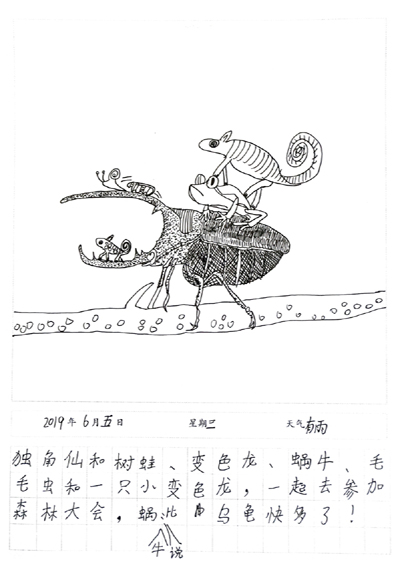 2019年6月五日 星期三 天气有雨
独角仙和树蛙、变色龙、蜗牛、毛
毛虫和一只小变色龙，一起去参加
森林大会，蜗牛说：比乌龟快多了！